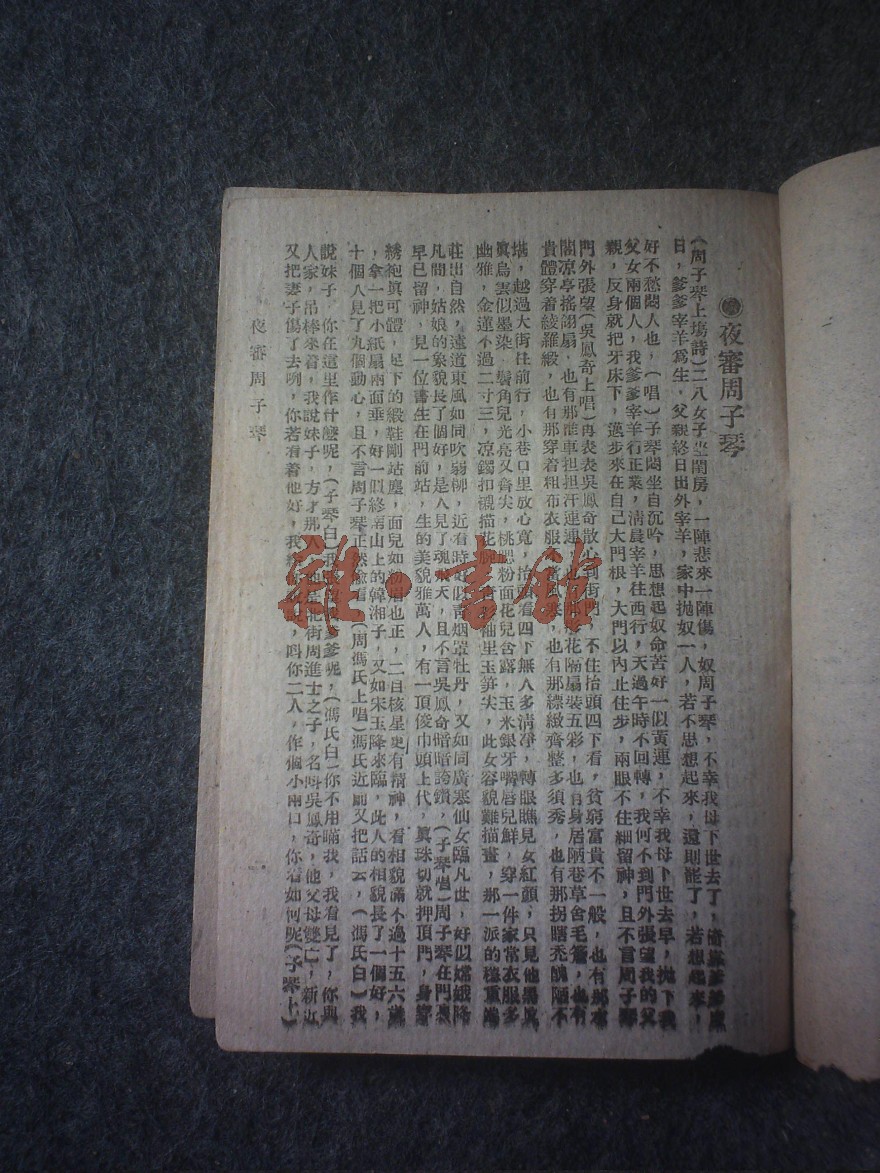 夜審周子琴
(周子琴上塲詩)二八女子坐閨房,一陣悲來一陣傷,奴周子琴,不幸我母下世去了,爹爹度
日,爹爹宰羊爲生,父親終日出外宰羊,家中抛奴一人,若不思想起來,還則罷了,若想起來,
好不愁悶人也,(唱)子琴悶坐自沉吟,思想起奴命苦好一似黃連,不幸我母下世去早,抛下我
父女兩個人,我爹爹宰羊行正業,淸晨宰羊往西行,天過午時不回轉,我何不到門外張望我的父
親,反身就把牙床下,邁步來在自己大門根,大門以內止住步,兩眼不住細留神,且不言周子琴
門外張望(吳鳳奇上唱)再表表吳鳳奇散心到街門,不住抬頭四下看,貧窮富貴不一般,也有那
閣凉亭搖翎扇,也有那推車担担汗連連,花隔扇裝五彩,也有身居陋巷草舍毛菴,也有
貴體穿着綾羅緞,也有那穿着粗布衣服,也有那縹緻齊整多須秀,也有那拐瞎禿醜陋不
堪,越過大街往前行,小巷口里放心寬,看四下無人多淸凈,轉眼瞧見女紅顏,只見他
眞烏雲似墨染,鬢角兒光亮又齊尖,桃腮粉面花兒含露,玉米銀牙嘴唇兒鮮,穿一件家常衣服多
幽雅,金蓮不過二寸三,凉鐲扣襯描花腕,袖里玉笋尖,此女容貌難描畫,那一派的穩重端
莊出自然,遠道東風如同吹弱柳,近看時好似靑烟罩牡丹,又如同廣寒仙女臨凡世,好似嫦娥降
凡間,姑娘的象貌長了個好,是人見了魂天,且不言吳鳳奇暗暗誇鑽,(子琴唱)周子琴在門裏
早已留神,見一位書生在門前站,生的美貌雅萬人,有一頂俊巾頭上代,眞珠切就押頂門,身穿
綉袍眞可體,足下的緞鞋剛站塵,面兒如粉眉也正,二目核星更有精神,看相貌滿不過十五六歲
,拿一把小紙扇兩面垂,好一似終南山上的韓湘子,又如宋玉降來臨,此人的相貌長了一個好,
十個八見了九個動心,且不言周子琴正然偸看(周馮氏上唱)馮氏近前又把話云,(馮氏白)我
說妹子,你在這里作什麽呢,(子琴白)我爹爹呢,(馮氏白)你不用瞞我,我看見了,你與
人家,吊棒來着,我說妹子,方才那人他是北街周進士之子,名叫吳鳳奇,他父母雙亡,新近
又把妻子傷了去咧,你若看着他好,我給,叫你二人,作個小兩口,你看如何呢(子琴上)
夜審周子琴
雜·書館